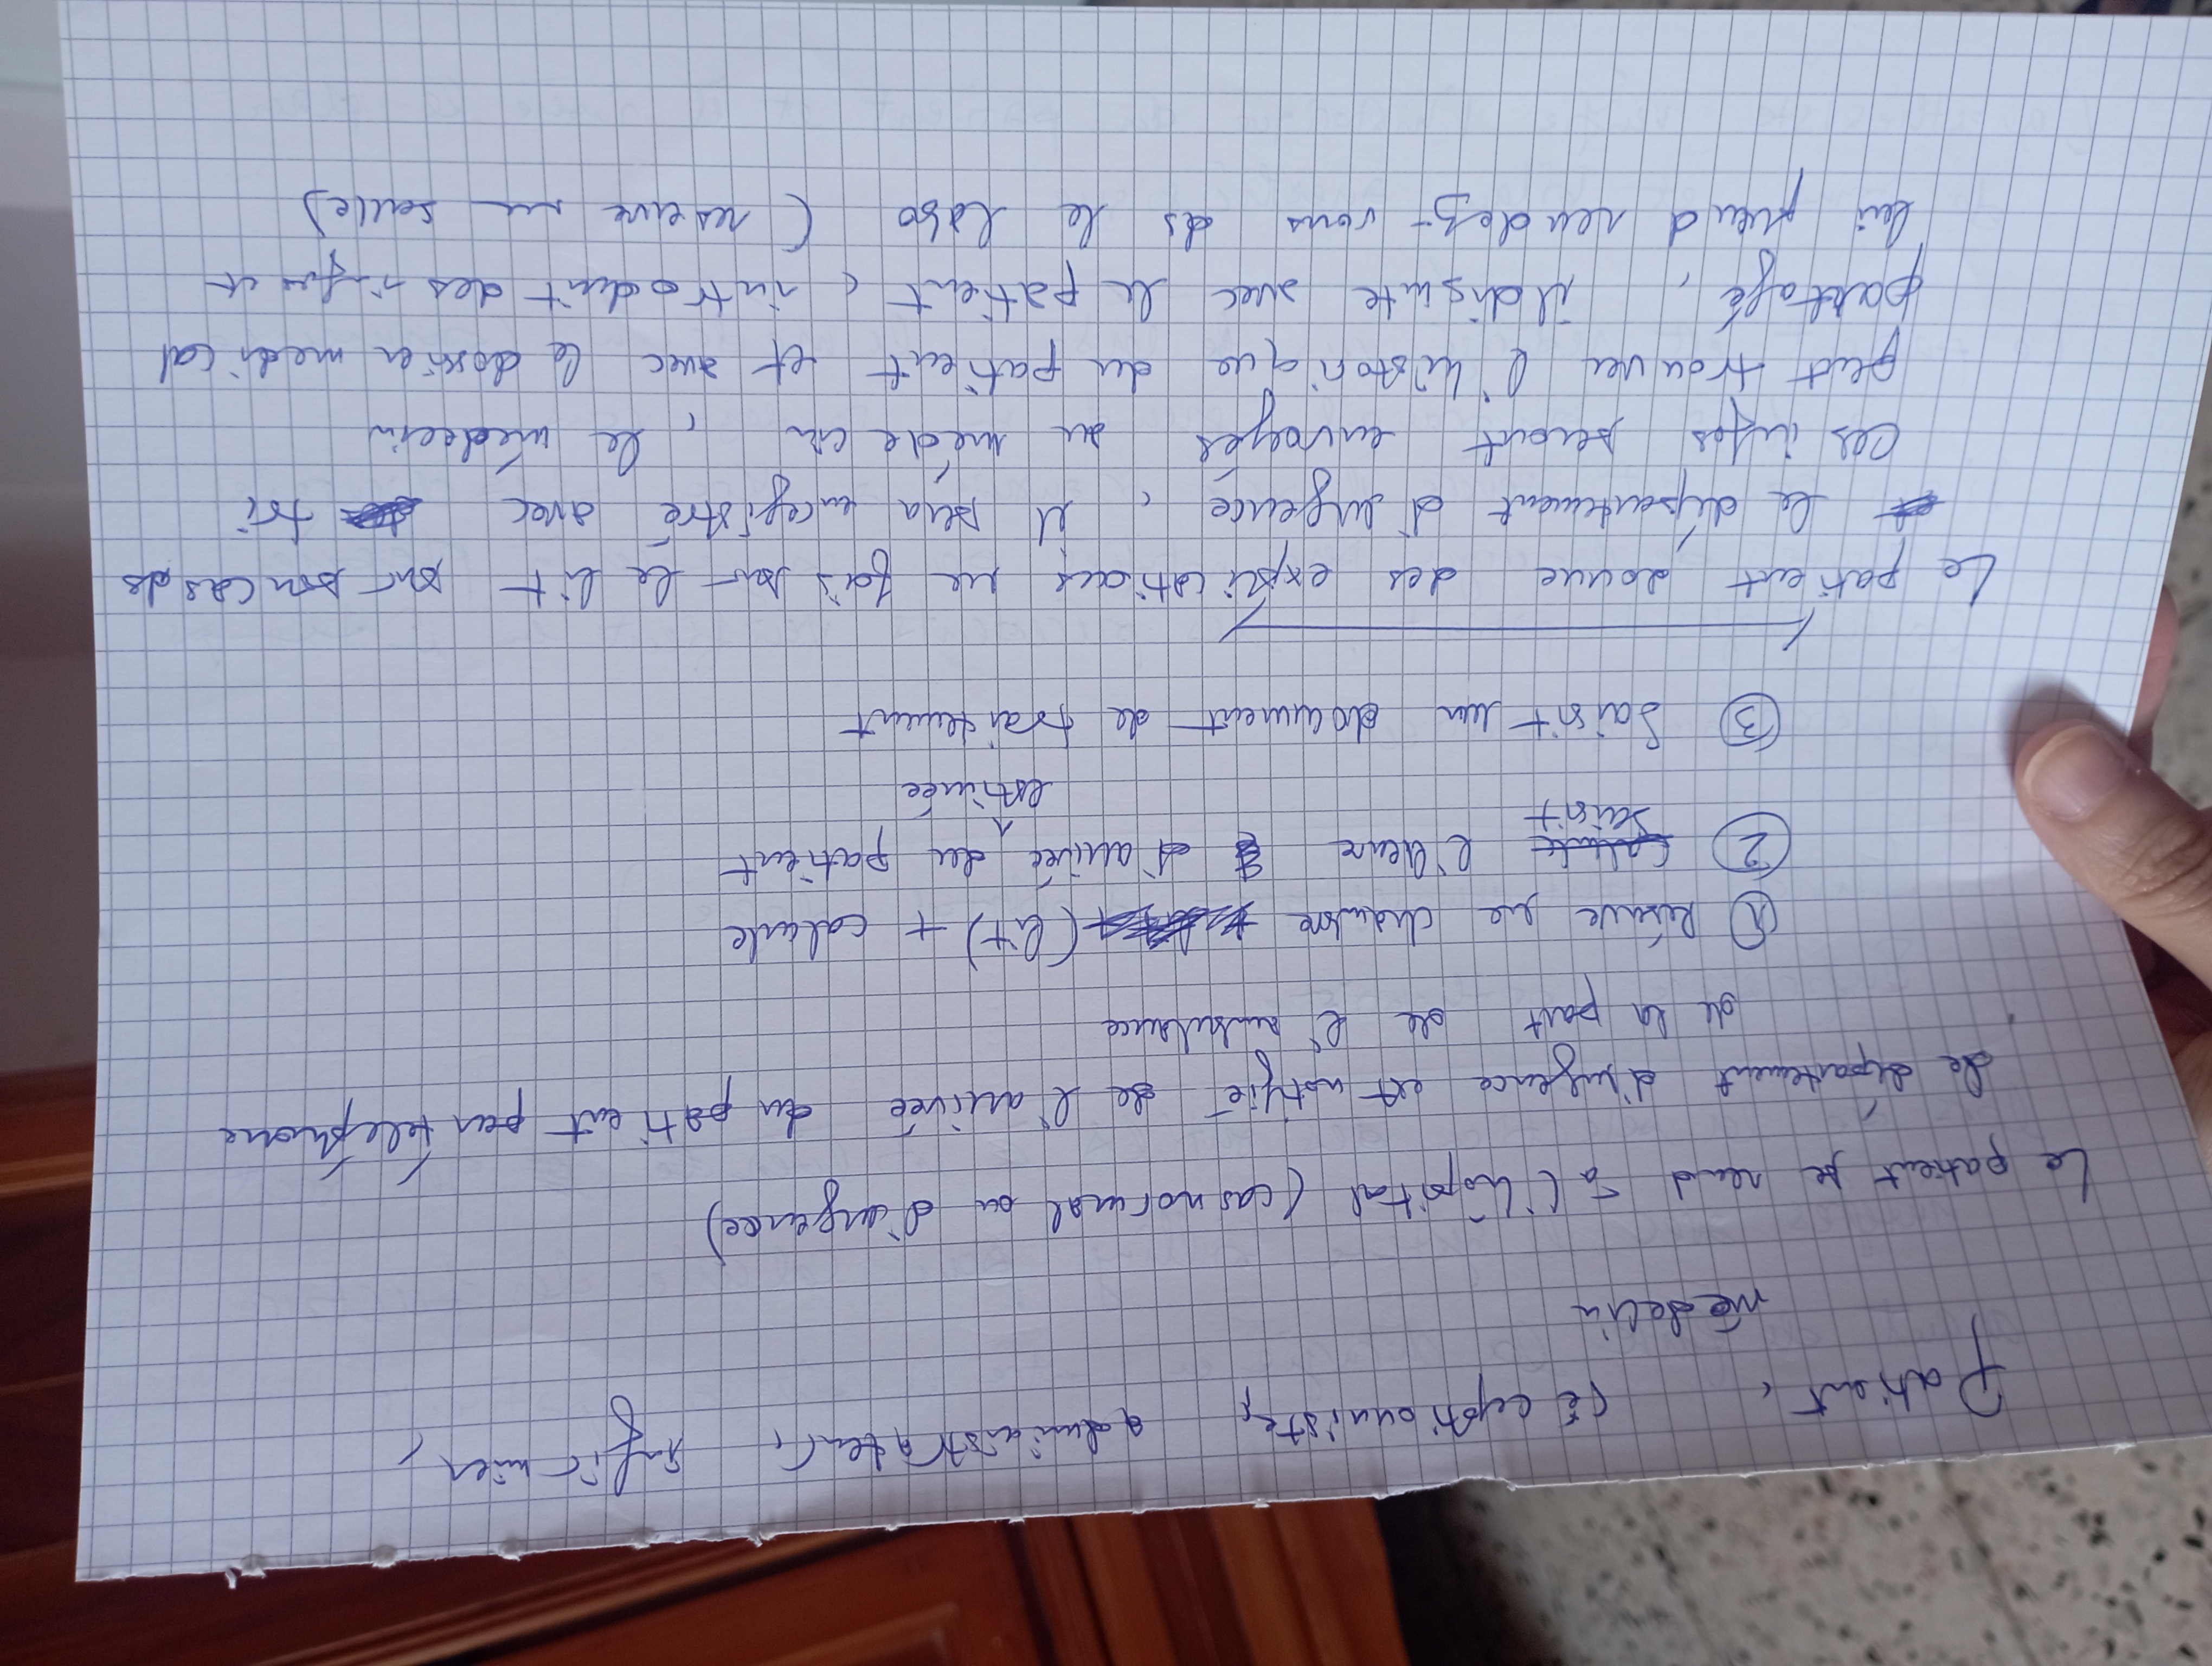 Patient, réceptionniste, administrateur, infirmier,
médecin
Le patient se rend à l'hôpital (cas normal ou d'urgence)
Le département d'urgence est notifié de l'arrivée du patient par téléphone
de la part de l'ambulance
① Réserve une chambre (lit) + calcule
② Saisit l'heure d'arrivée estimée du patient
③ Saisit un document de traitement
Le patient donne des explications une fois sur le lit sur son cas ds
le département d'urgence, il sera enregistré avec tri
Ces infos seront envoyés au médecin, le médecin
peut trouver l'historique du patient et avec le dossier medical
partagé, il discute avec le patient, introduit des infos et
lui prend rendez-vous ds le labo (reserve une salle)